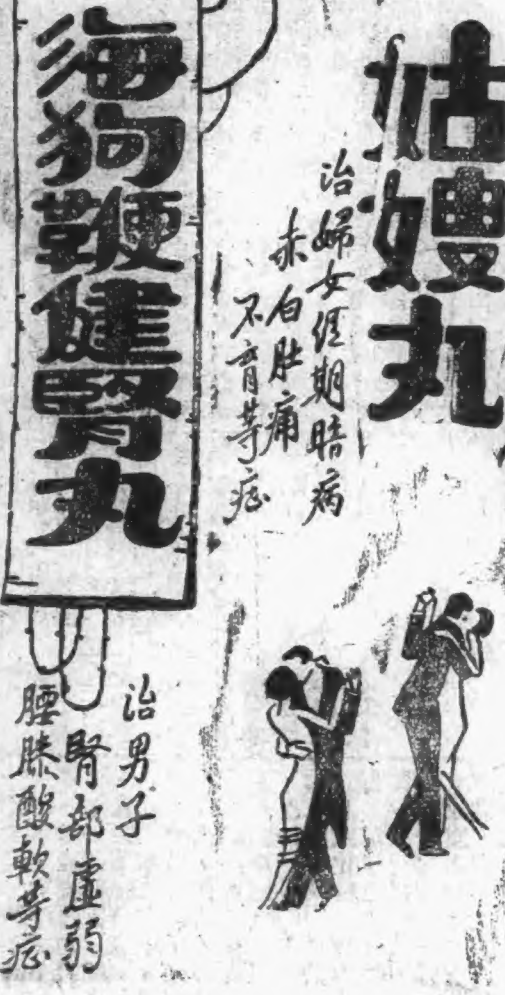 姑嫂丸
治婦女經期暗病
赤白肚痛
不育等症
海狗鞭健腎丸
治男子
腎部虛弱
腰膝酸軟等症